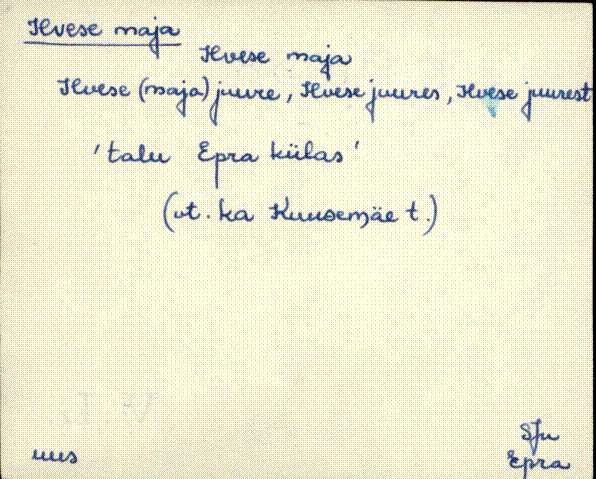 Ilvese maja
Ilvese maja
Ilvese (maja) juure, Ilvese juures, Ilvese juurest
'talu Epra külas'
(vt. ka Kuusemäe t.)
SJn
uus Epra